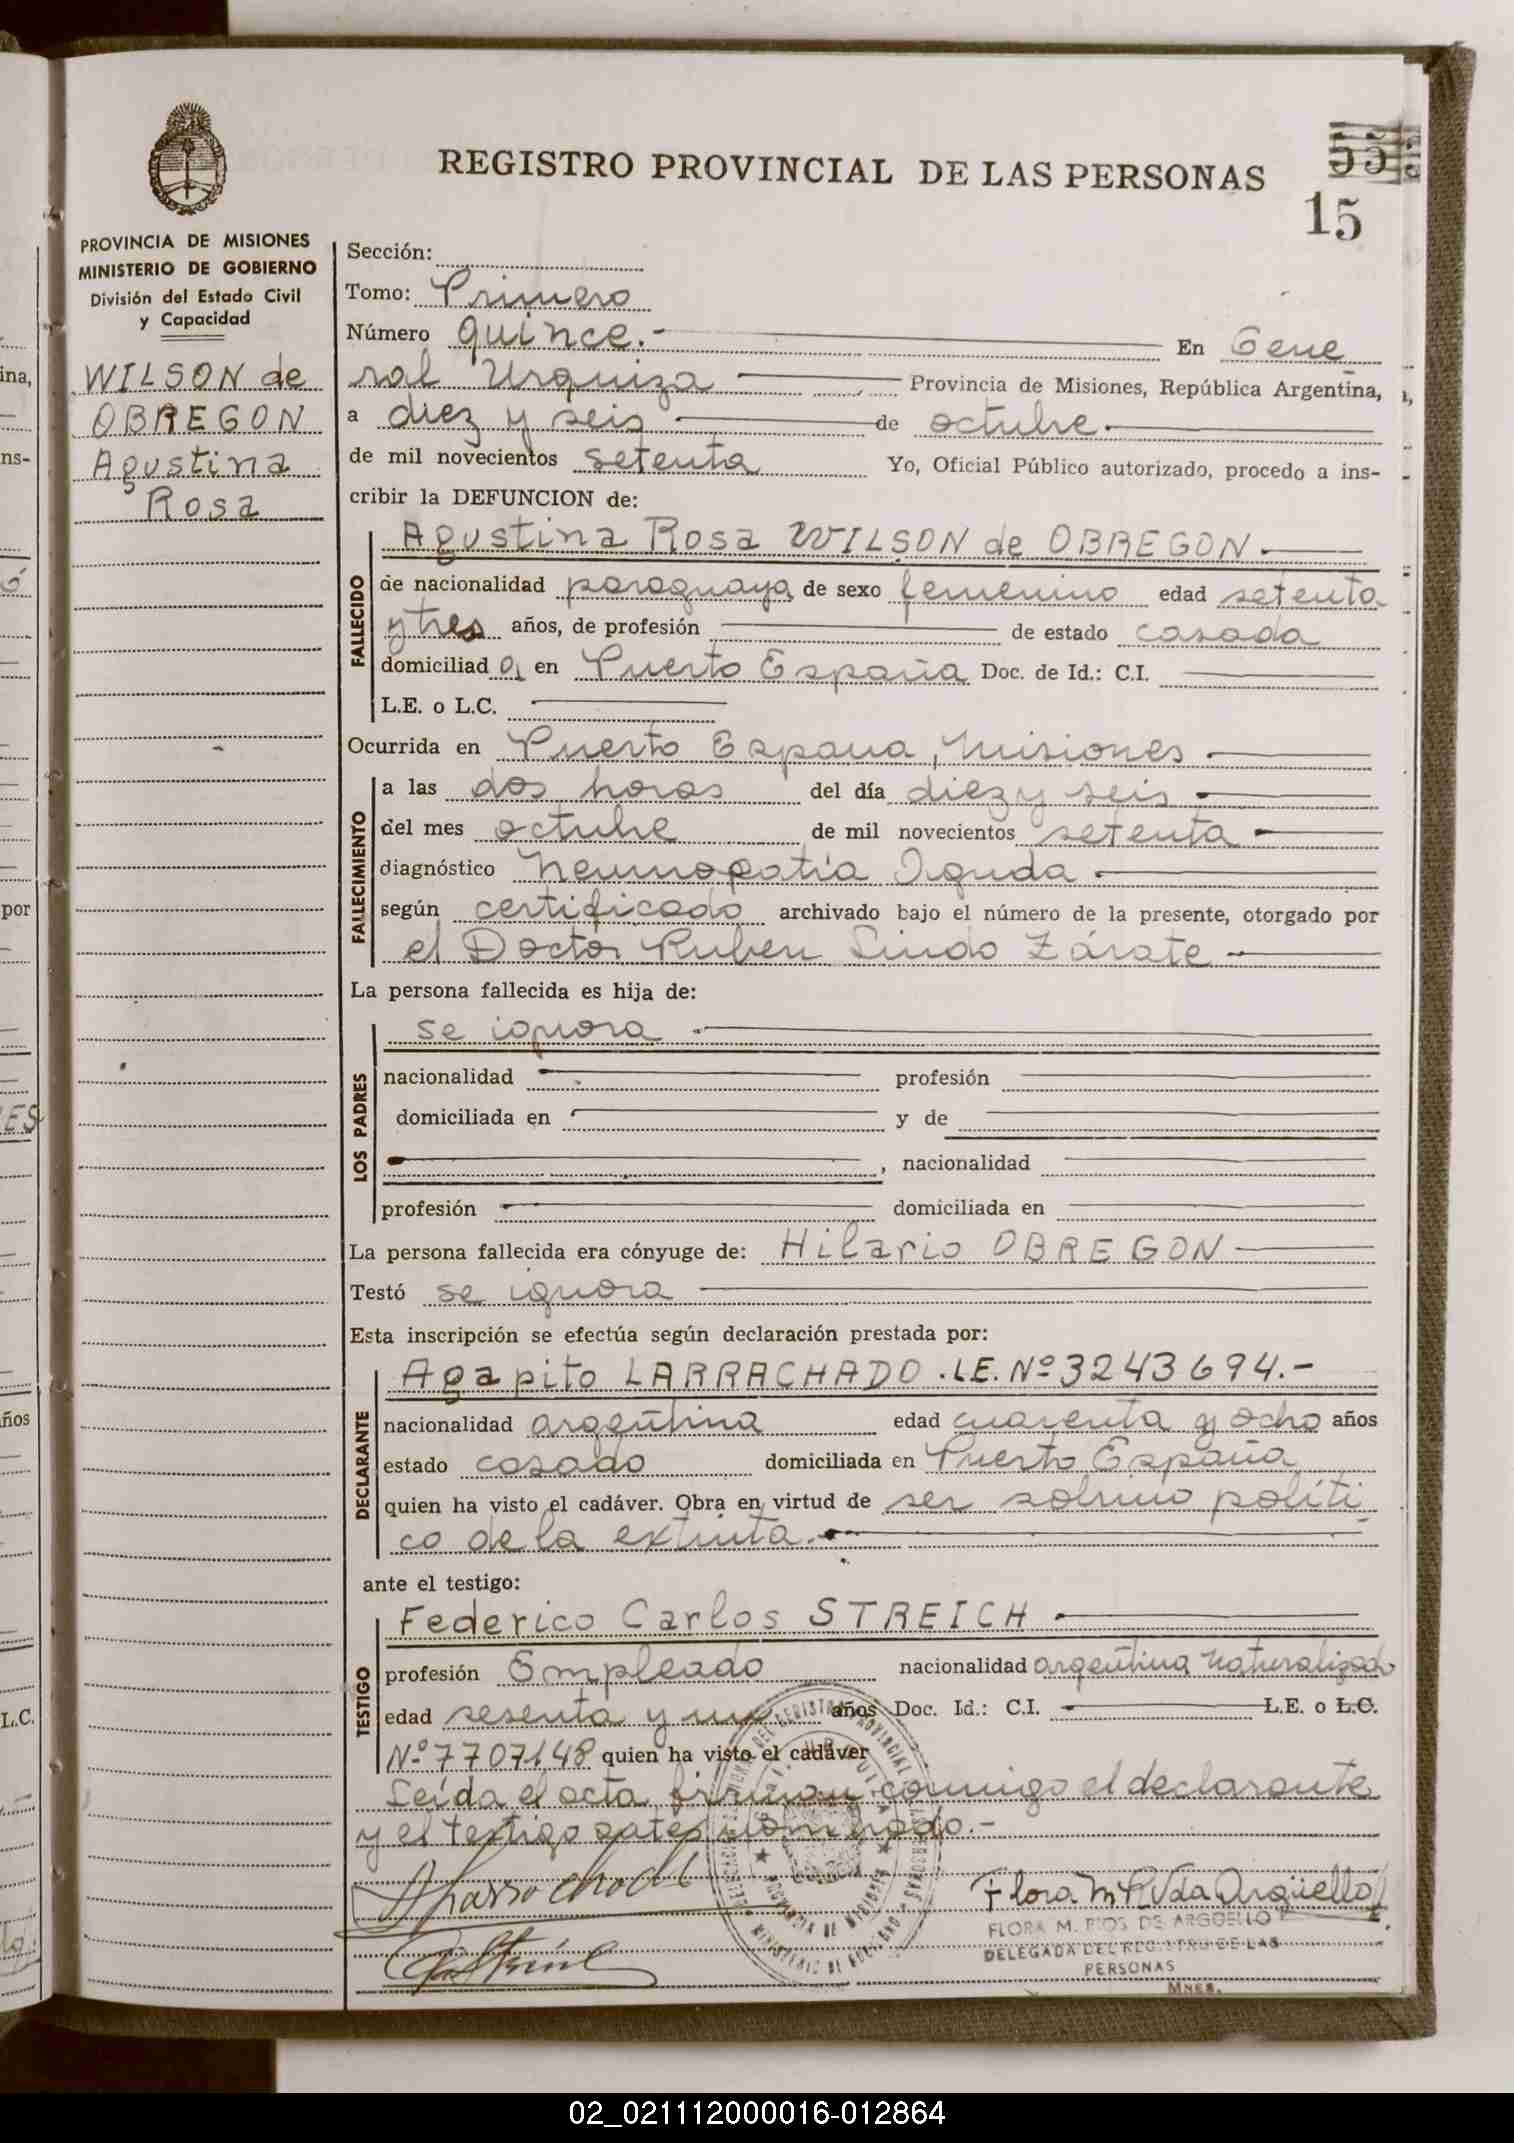 REGISTRO PROVINCIAL DE LAS PERSONAS
55
15
PROVINCIA DE MISIONES
MINISTERIO DE GOBIERNO
División del Estado Civil
y Capacidad
WILSON de
OBREGON
Agustina
Rosa
Sección:
Tomo: Primero
Número quince.- En Gene
ral Urquiza Provincia de Misiones, República Argentina,
a diez y seis de octubre.
de mil novecientos setenta Yo, Oficial Público autorizado, procedo a ins-
cribir la DEFUNCION de:
FALLECIDO
Agustina Rosa WILSON de OBREGON.
de nacionalidad paraguaya de sexo femenino edad setenta
y tres años, de profesión de estado casada
domiciliad a en Puerto España Doc. de Id.: C.I.
L.E. o L.C.
Ocurrida en Puerto España, Misiones.
FALLECIMIENTO
a las dos horas del día diez y seis.
del mes octubre de mil novecientos setenta
diagnóstico Neumopatía Aguda.
según certificado archivado bajo el número de la presente, otorgado por
el Doctor Ruben Lindo Zárate
La persona fallecida es hija de:
LOS PADRES
se ignora
nacionalidad profesión
domiciliada en y de
, nacionalidad
profesión domiciliada en
La persona fallecida era cónyuge de: Hilario OBREGON
Testó se ignora
Esta inscripción se efectúa según declaración prestada por:
DECLARANTE
Agapito LARRACHADO. LE. Nº 3243694.-
nacionalidad argentina edad cuarenta y ocho años
estado casado domiciliada en Puerto España
quien ha visto el cadáver. Obra en virtud de ser sobrino políti
co de la extinta.
ante el testigo:
TESTIGO
Federico Carlos STREICH.
profesión Empleado nacionalidad argentina naturalizado
edad sesenta y un años Doc. Id.: C.I. L.E. o L.C.
Nº 7707148 quien ha visto el cadáver
Leída el acta, firman conmigo el declarante
y el testigo antes nombrado.-
Flora M R Vda Argüello
FLORA M. RIOS DE ARGUELLO
DELEGADA DEL REGISTRO DE LAS
PERSONAS
MNES.
02_021112000016-012864